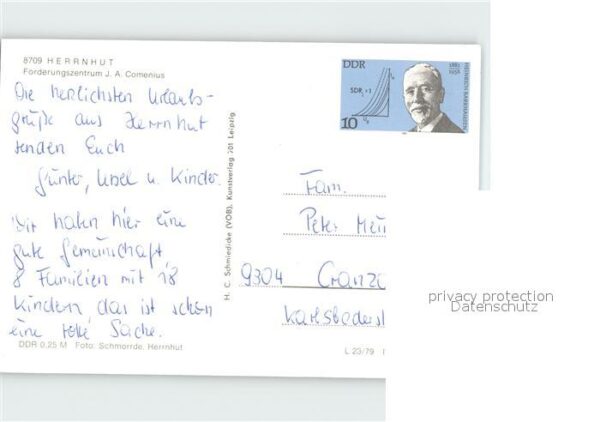 8709 HERRNHUT
Förderungszentrum J. A. Comenius
Die herzlichsten Urlaubs-
grüße aus Herrnhut
senden Euch
Günter, Ursel u. Kinder.
Wir haben hier eine
gute Gemeinschaft,
8 Familien mit 18
Kindern, das ist schon
eine tolle Sache.
DDR 0,25 M Foto: Schmorrde, Herrnhut
H. C. Schmiedicke (VOB), Kunstverlag 701 Leipzig
DDR
1881
1958
HEINRICH BARKHAUSEN
SDRi = 1
10
Fam.
Peter
9304 Cranz
Karlsbaderst
L 23/79
privacy protection
Datenschutz